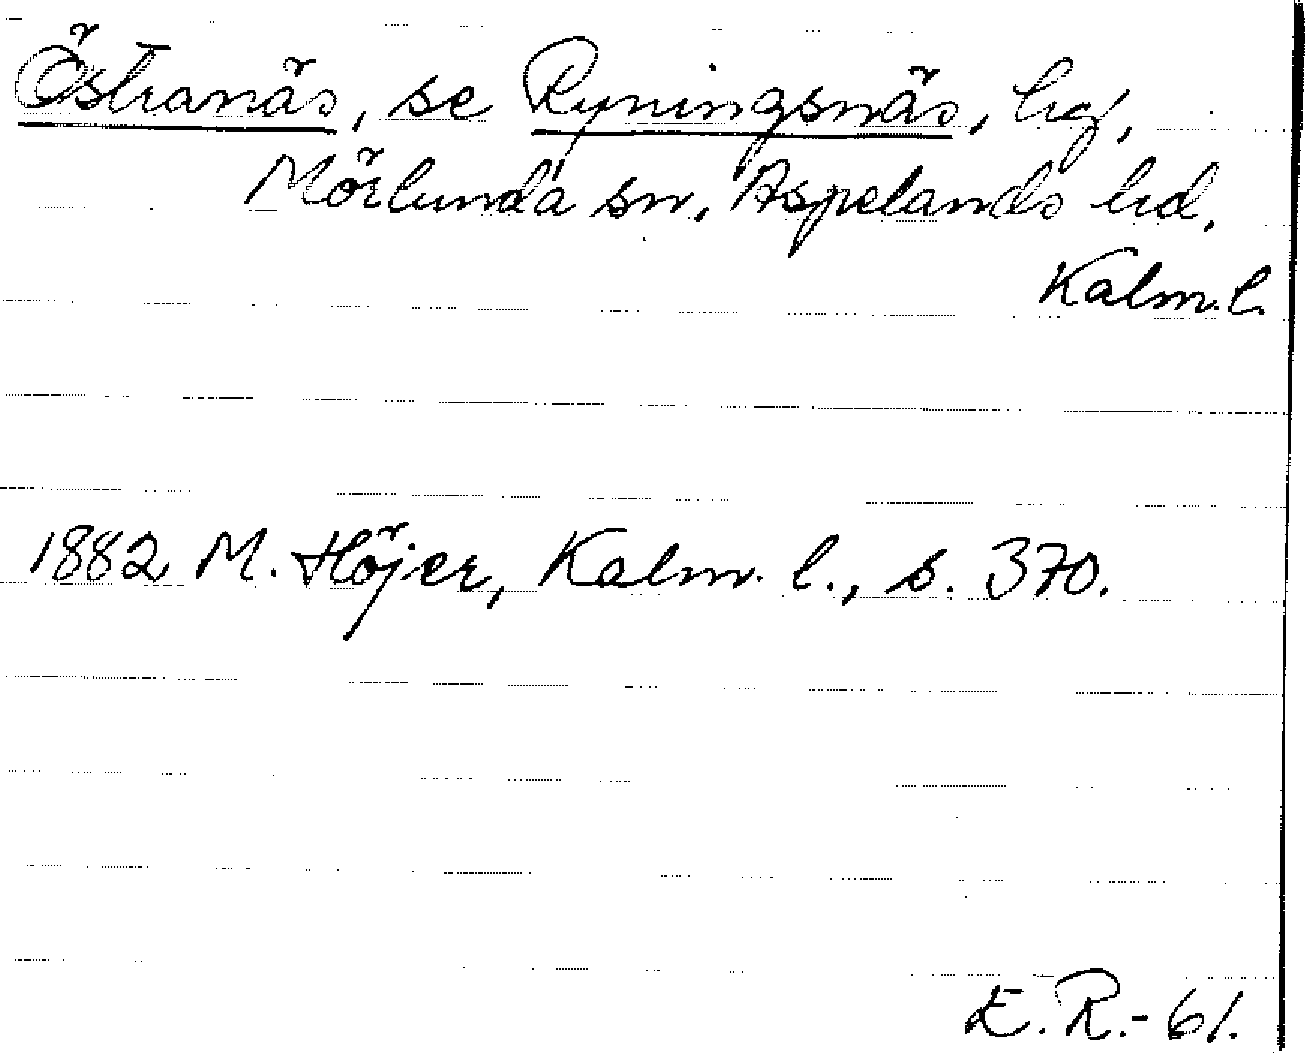 Östranäs, se Ryningsnäs, hg,
Mörlunda sn, Aspelands hd.
Kalm. l.
1882 M. Höjer, Kalm. l., s. 370.
E. R. - 61.